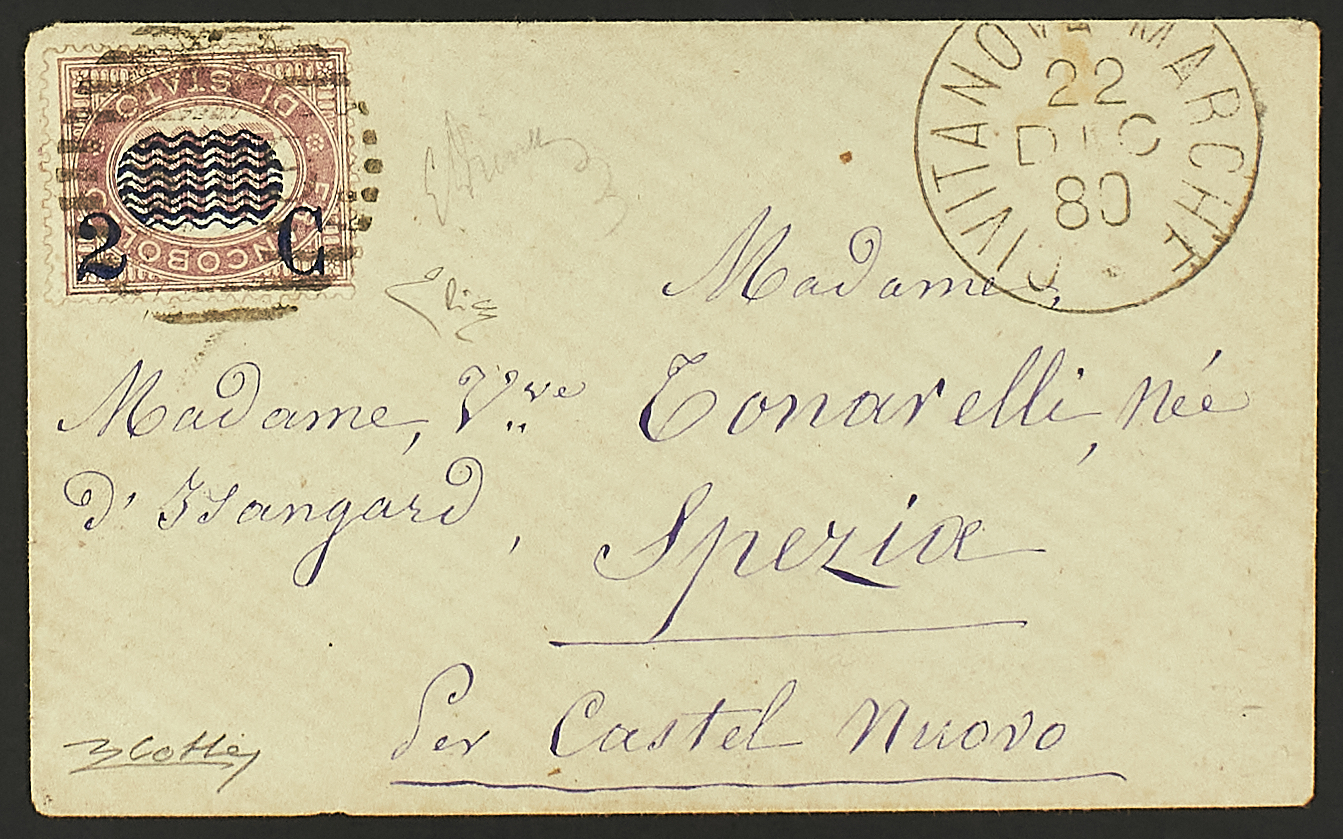 CIVITANOVA MARCHE
22
DIC
80
DI STATO
FRANCOBOLLO
2 C
Madame,
Madame, Vve Tonarelli, née
d'Isangard,
Speziæ
Per Castel Nuovo